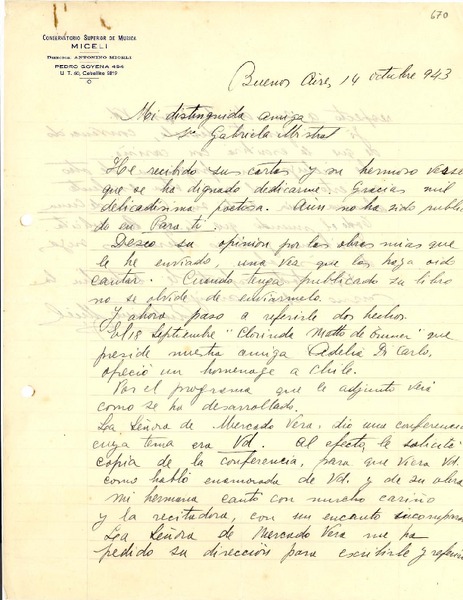 670
CONSERVATORIO SUPERIOR DE MUSICA
MICELI
DIRECTOR: ANTONINO MICELI
PEDRO GOYENA 494
U. T. 60, Caballito 9819
Buenos Aires, 14 octubre 943
Mi distinguida amiga
Sra Gabriela Mistral
He recibido sus cartas y su hermoso verso
que se ha dignado dedicarme. Gracias mil
delicadísima poetisa. Aún no ha sido publica
do en Para ti.
Deseo su opinión por las obras mías que
le he enviado, una vez que las haya oido
cantar. Cuando tenga publicado su libro
no se olvide de enviármelo.
Y ahora paso a referirle dos hechos.
El 18 Septiembre "Clorinda Matto de Turner" que
preside nuestra amiga Adelia Di Carlo,
ofreció un homenaje a Chile.
Por el programa que le adjunto verá
como se ha desarrollado.
La Señora de Mercado Vera, dio una conferencia
cuyo tema era Vd. Al efecto le solicité
copia de la conferencia, para que viera Vd.
como habló enamorada de Vd. y de su obra
Mi hermana cantó con mucho cariño
y la recitadora, con un encanto incompara
La Señora de Mercado Vera me ha
pedido su dirección para escribirle y referir